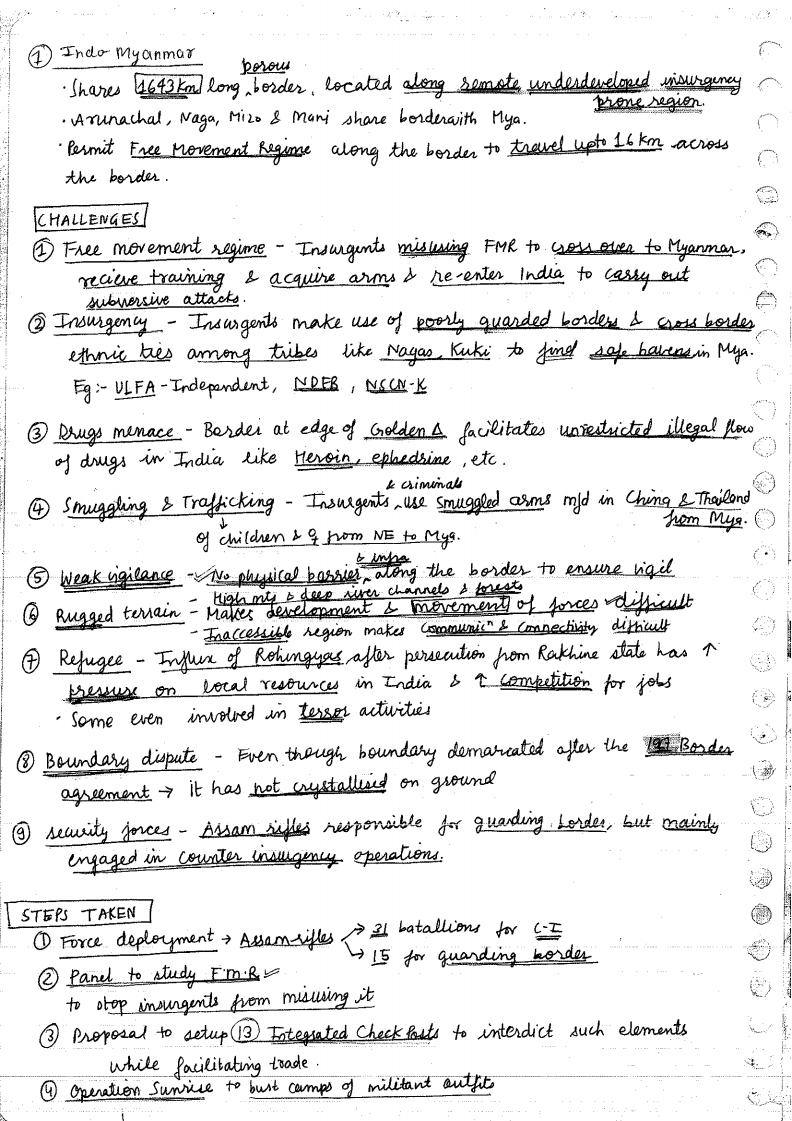 ① Indo Myanmar
· Shares 1643 km long porous border, located along remote underdeveloped insurgency
prone region.
· Arunachal, Naga, Mizo & Mani share border with Mya.
· Permit Free Movement Regime along the border to travel upto 16 km across
the border.
CHALLENGES
① Free movement regime - Insurgents misusing FMR to cross over to Myanmar,
recieve training & acquire arms & re-enter India to carry out
subversive attacks.
② Insurgency - Insurgents make use of poorly guarded borders & cross border
ethnic ties among tribes like Nagas, Kuki to find safe havens in Mya.
Eg:- ULFA - Independent, NDFB, NSCN-K
③ Drugs menace - Border at edge of Golden Δ facilitates unrestricted illegal flow
of drugs in India like Heroin, ephedrine, etc.
④ Smuggling & Trafficking - Insurgents & criminals use smuggled arms m/d in China & Thailand
from Mya.
↓
of children & ♀ from NE to Mya.
⑤ Weak vigilance - ✓No physical barrier & infra along the border to ensure vigil
- High mts & deep river channels & forests
⑥ Rugged terrain - Makes development & movement of forces difficult
- Inaccessible region makes communicⁿ & connectivity difficult
⑦ Refugee - Influx of Rohingyas after persecution from Rakhine state has ↑
pressure on local resources in India & ↑ competition for jobs
· Some even involved in terror activities
⑧ Boundary dispute - Even though boundary demarcated after the Border
agreement → it has not crystallised on ground
⑨ Security forces - Assam rifles responsible for guarding border, but mainly
engaged in counter insurgency operations.
STEPS TAKEN
① Force deployment → Assam rifles → 31 batallions for C-I
→ 15 for guarding border
② Panel to study F.M.R ✓
to stop insurgents from misusing it
③ Proposal to setup 13 Integrated Check Posts to interdict such elements
while facilitating trade.
④ Operation Sunrise to bust camps of militant outfits